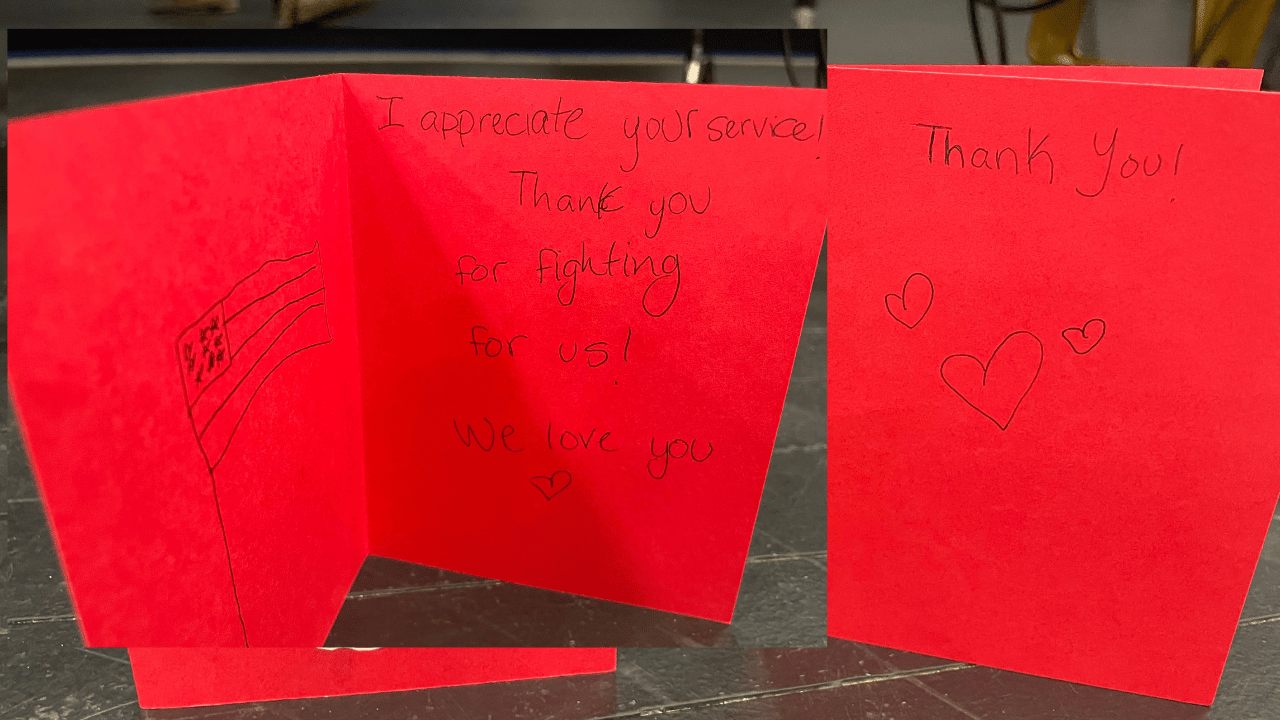 I appreciate your service!
Thank you
for fighting
for us!
We love you
Thank You!